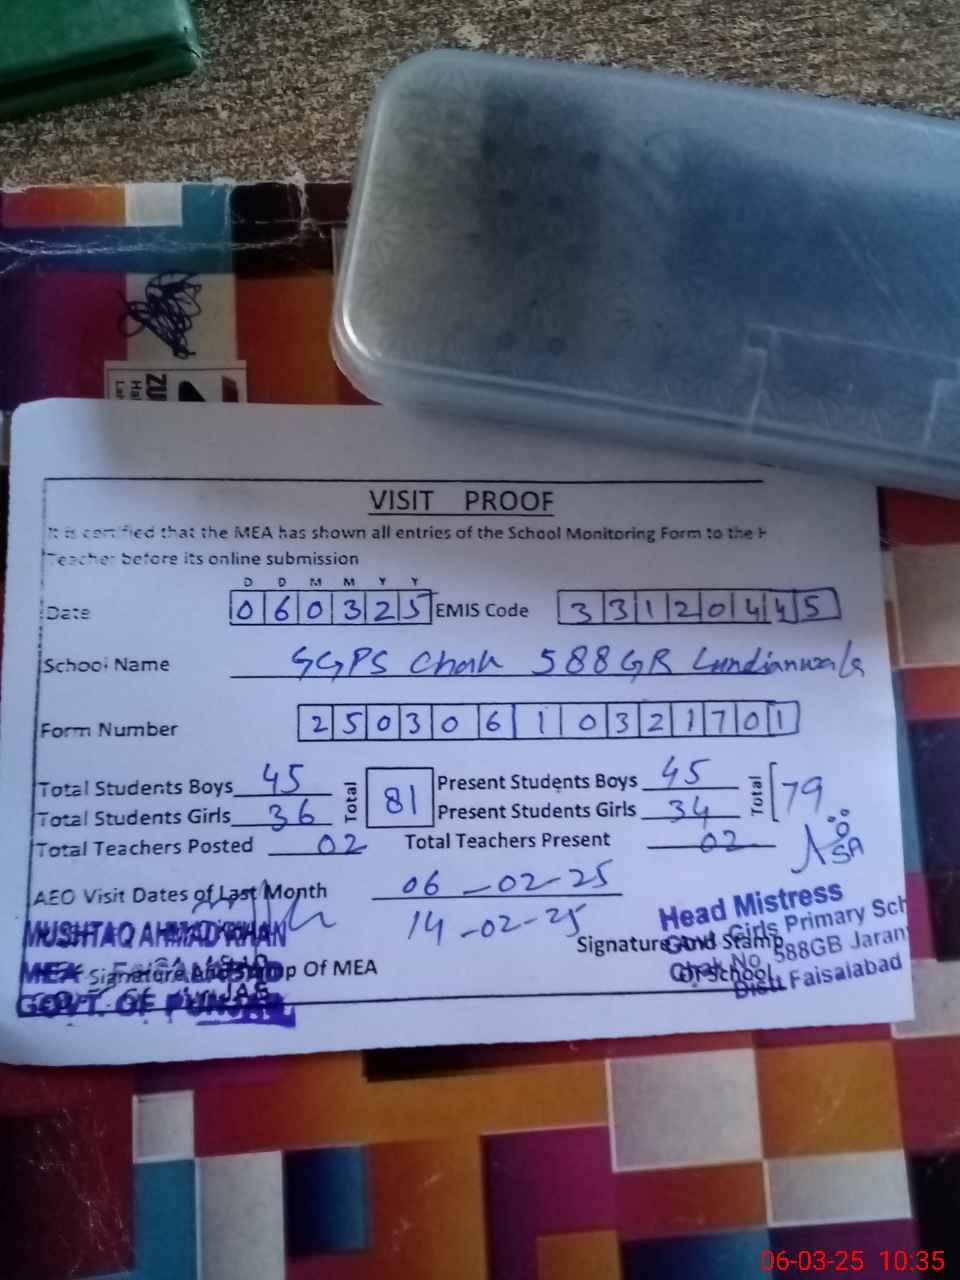 ZU
VISIT PROOF
It is certified that the MEA has shown all entries of the School Monitoring Form to the H
Teacher before its online submission
D D M M Y Y
Date 0 6 0 3 2 5 EMIS Code 3 3 1 2 0 4 4 5
School Name GGPS Chak 588GB Lundianwala
Form Number 2 5 0 3 0 6 1 0 3 2 1 7 0 1
Total Students Boys 45 Total 81 Present Students Boys 45 Total 79
Total Students Girls 36 Present Students Girls 34
Total Teachers Posted 02 Total Teachers Present 02
AEO Visit Dates of Last Month 06-02-25
14-02-25
MUSHTAQ AHMAD KHAN
MEA
GOVT. OF PUNJAB
Signature And Stamp Of MEA
Signature And Stamp
Of School
Head Mistress
Govt. Girls Primary Sch
Chak No. 588GB Jaran
Distt. Faisalabad
06-03-25 10:35